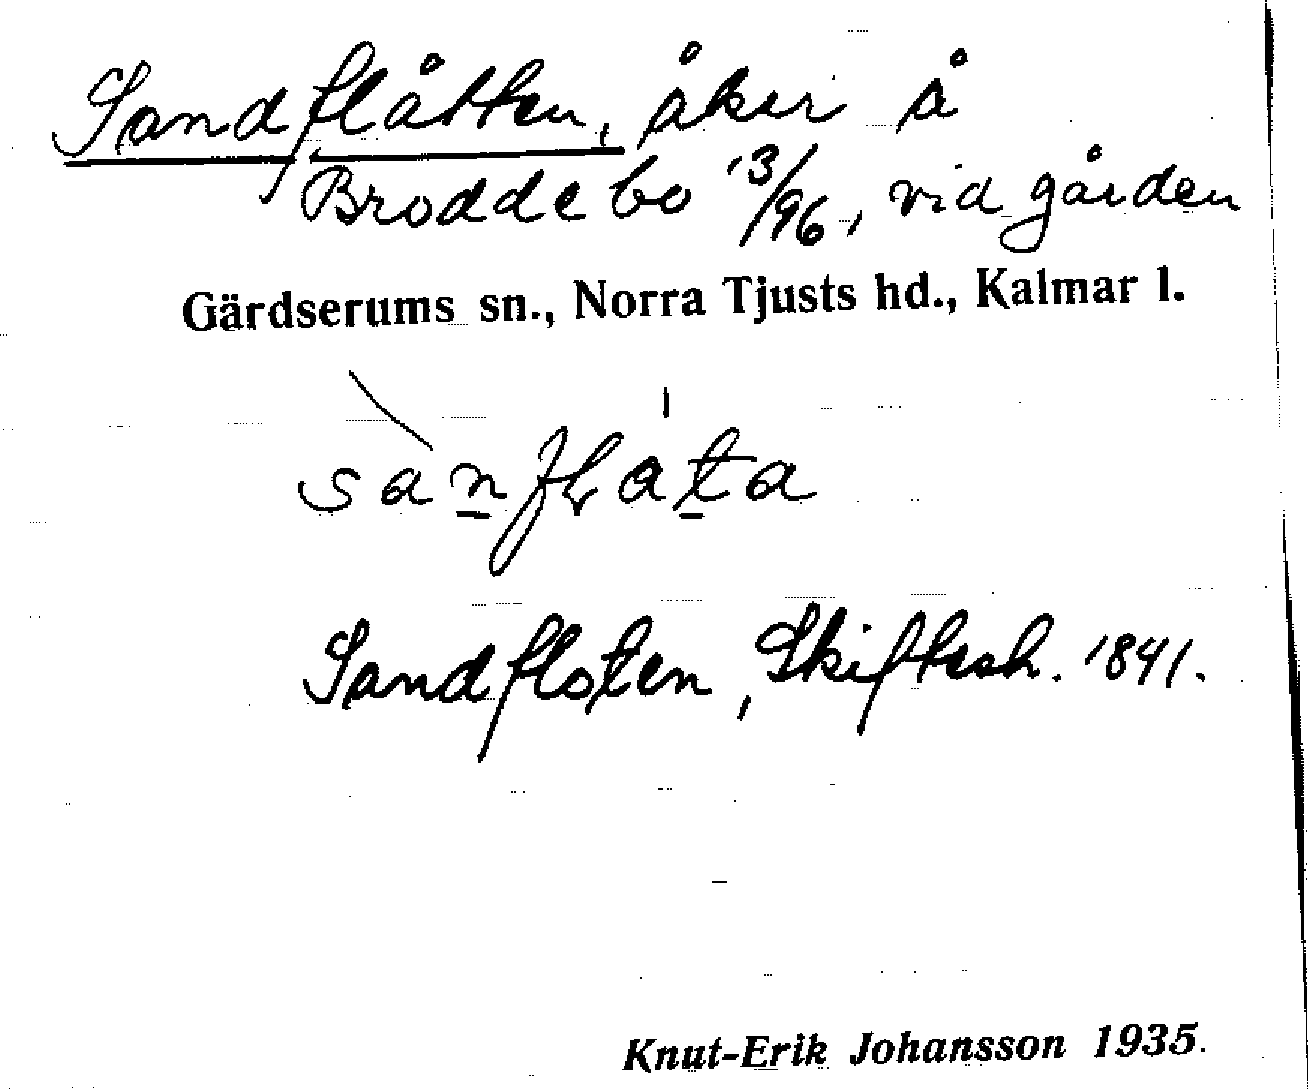 Sandflåtten, åker å
Broddebo 13/96, vid gården
Gärdserums sn., Norra Tjusts hd., Kalmar l.
Sandfloten, Skiftesh. 1841.
Knut-Erik Johansson 1935.